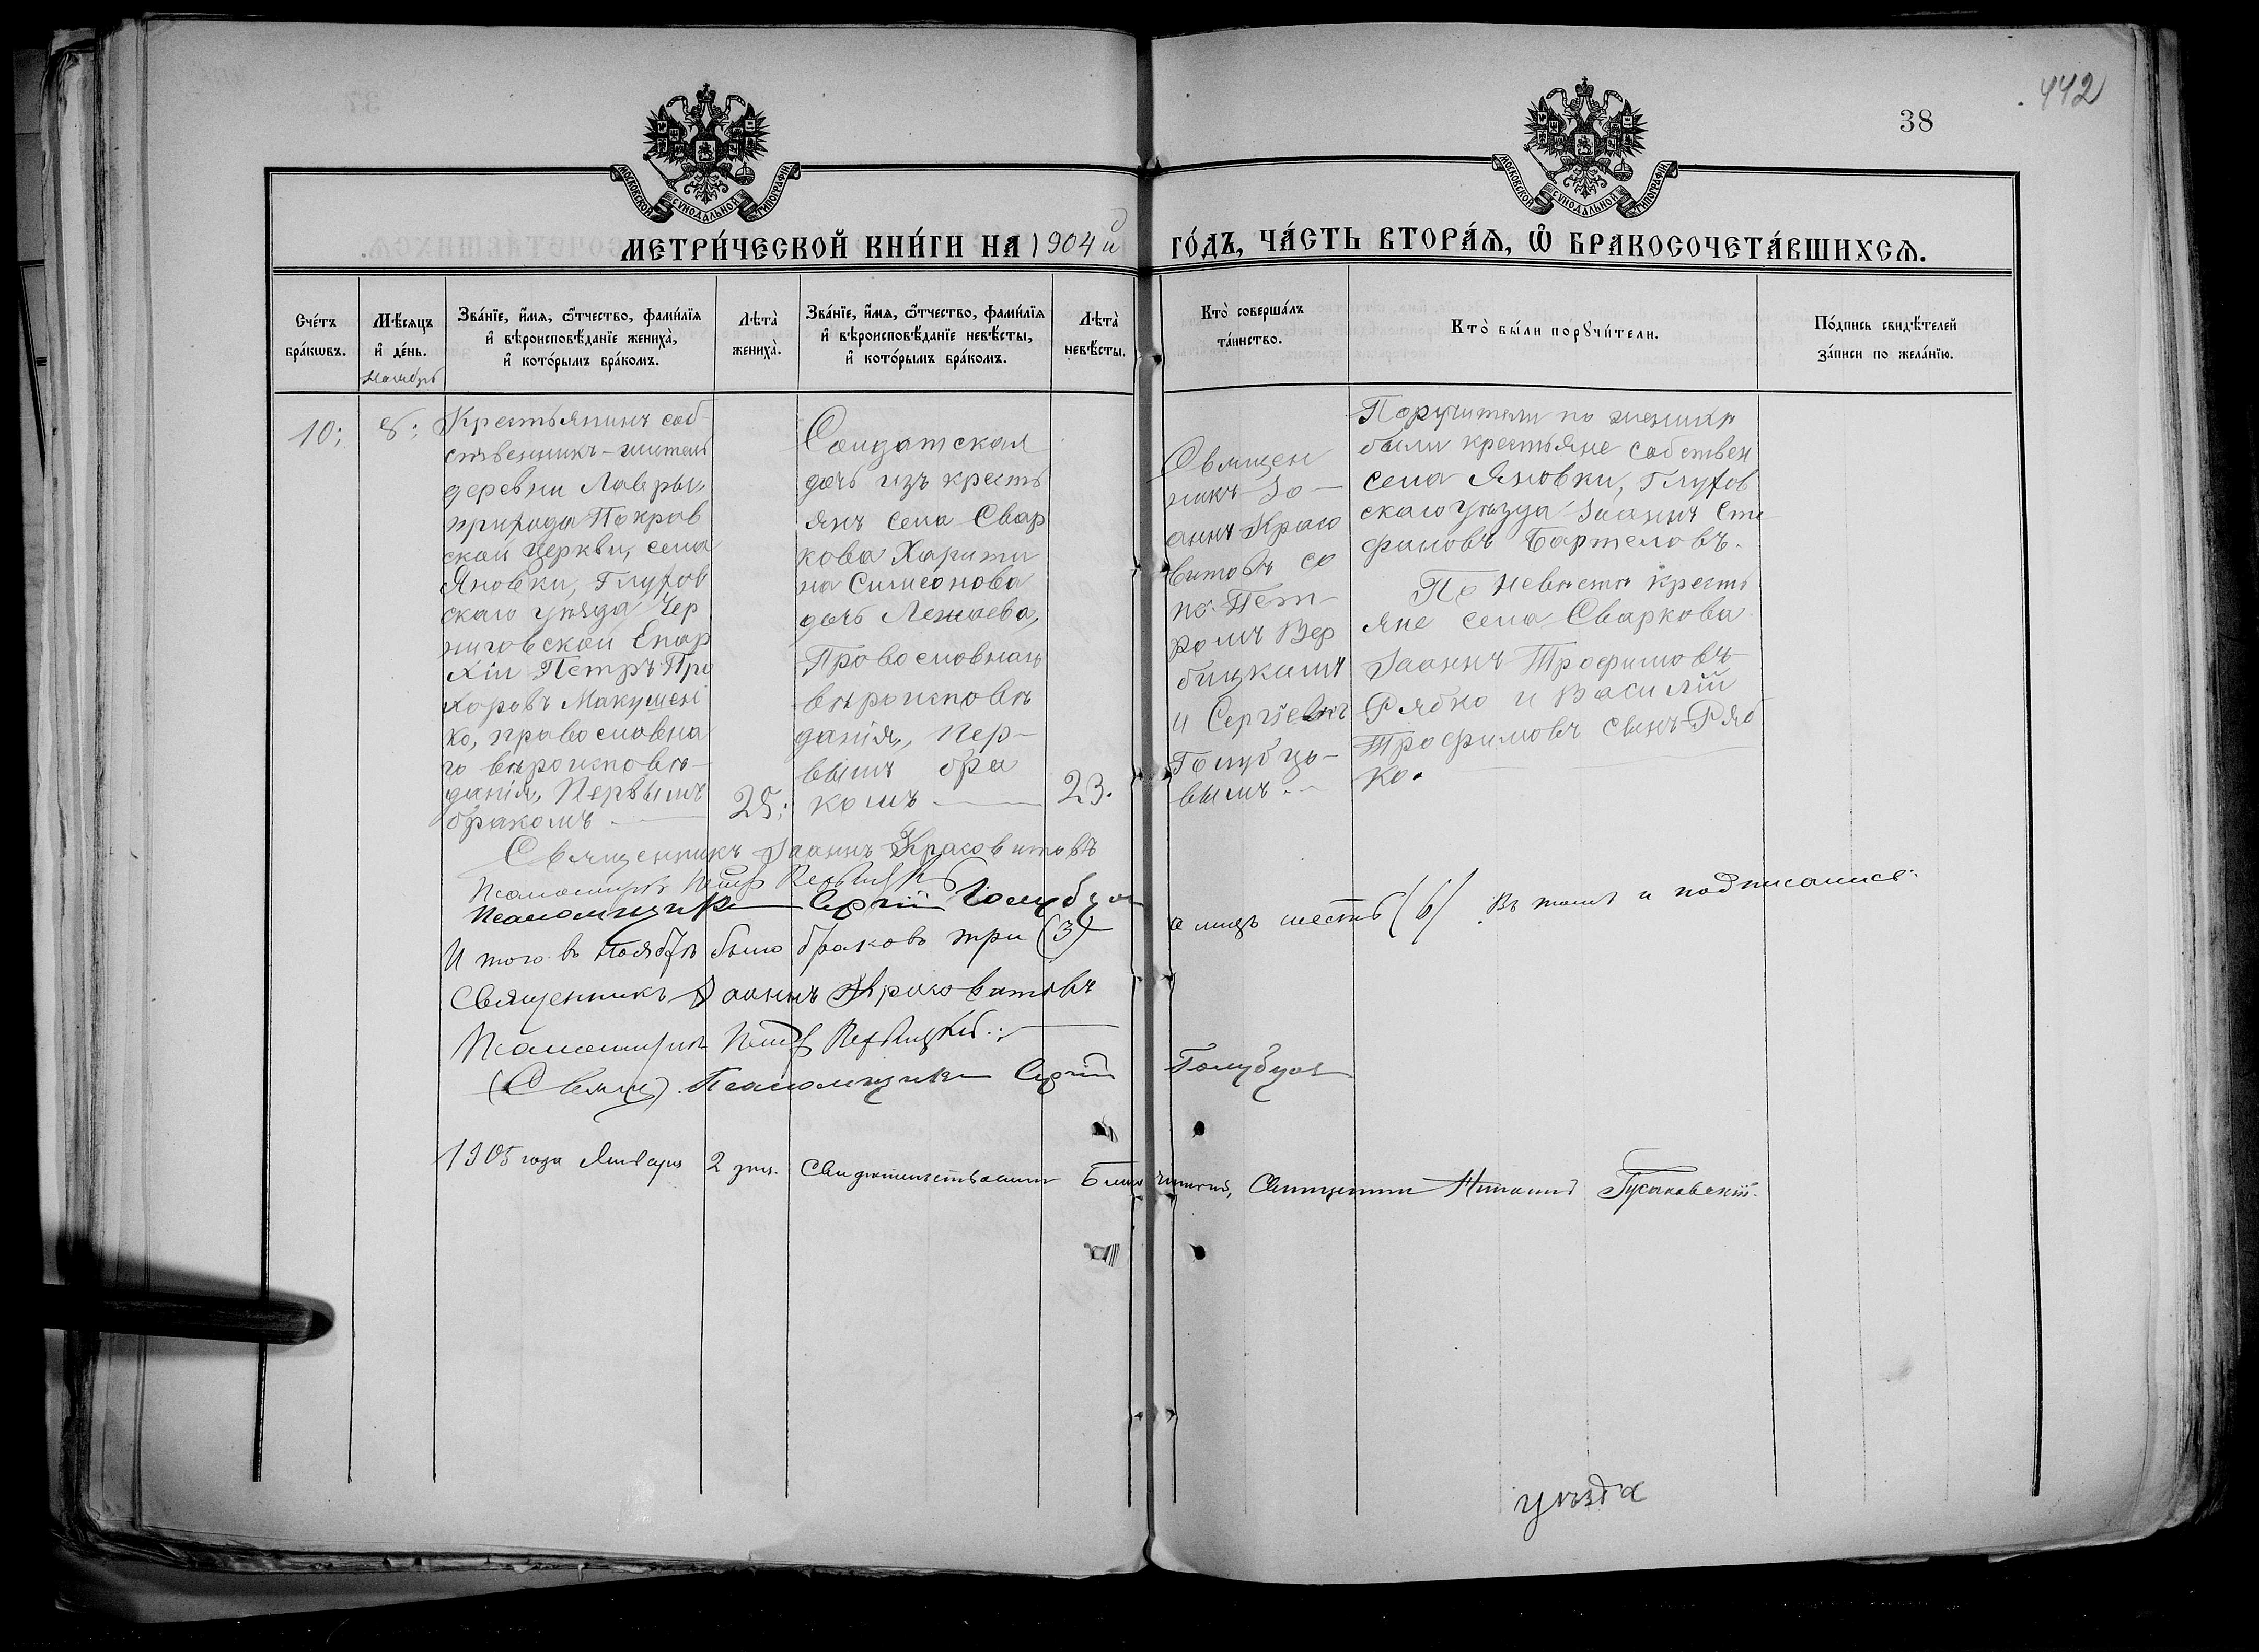 442
38
МОСКОВСКОЙ СѴНОДАЛЬНОЙ ТИПОГРАФІИ
МОСКОВСКОЙ СѴНОДАЛЬНОЙ ТИПОГРАФІИ
МЕТРИ́ЧЕСКОЙ КНИ́ГИ НА 1904 й ГО́ДЪ, ЧА́СТЬ ВТОРА́Ѧ, Ѽ БРАКОСОЧЕТА́ВШИХСѦ.
Сче́тъ
бра́кѡвъ.
Мѣ́сяцъ
и҆ де́нь.
Ноябрь
Зва́нїе, и҆́мя, ѻ҆́тчество, фами́лїя
и҆ вѣроисповѣ́данїе жениха̀,
и҆ кото́рымъ бра́комъ.
Лѣта̀
жениха̀.
Зва́нїе, и҆́мя, ѻ҆́тчество, фами́лїя
и҆ вѣроисповѣ́данїе невѣ́сты,
и҆ кото́рымъ бра́комъ.
Лѣта̀
невѣ́сты.
Кто̀ соверша́лъ
та́инство.
Кто̀ бы́ли порꙋчи́тели.
По́дпись свидѣ́телей
за́писи по жела́нїю.
10;
8;
Крестьянинъ соб-
ственникъ-житель
деревни Лавры,
прихода Покров
ской церкви, села
Яновки, Глухов
скаго уѣзда Чер
ниговской Епар
хіи Петръ Про
хоровъ Макушен
ко, православна
го вѣроисповѣ-
данія, Первымъ
бракомъ
25;
Солдатская
дочь изъ кресть
янъ села Свар
кова Харити
на Симеонова
дочь Лежаева,
Православнаго
вѣроисповѣ
данія, пер-
вымъ бра
комъ
23.
Священ
никъ Іо-
аннъ Красо
витовъ со
пс. Пет-
ромъ Вер
бицкимъ
и Сергіемъ
Голубцо-
вымъ.
Поручители по женихѣ
были крестьяне собствен
села Яновки, Глухов
скаго уѣзда Іоаннъ Сте
фановъ Бартеловъ.
По невѣстѣ кресть
яне села Сваркова
Іоаннъ Трофимовъ
Рябко и Василій
Трофимовъ сынъ Ряб
ко.
Священникъ Іоаннъ Красовитовъ
Псаломщикъ Петръ Вербицкій
Псаломщикъ Сергій Голубцов
И того въ Ноябрѣ было браковъ три (3) а лицъ шесть (6) Въ томъ и подписались:
Священникъ Іоаннъ Красовитовъ
Псаломщикъ Петръ Вербицкій
(Свящ) Псаломщикъ Сергій Голубцов
1905 года Января 2 дня. Свидѣтельствовалъ Благочинный, Священникъ Гусаковскій.
уѣзда